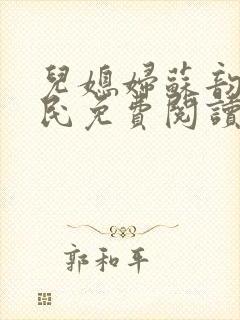 兒媳婦蘇韵
民免費閱讀
郭和平